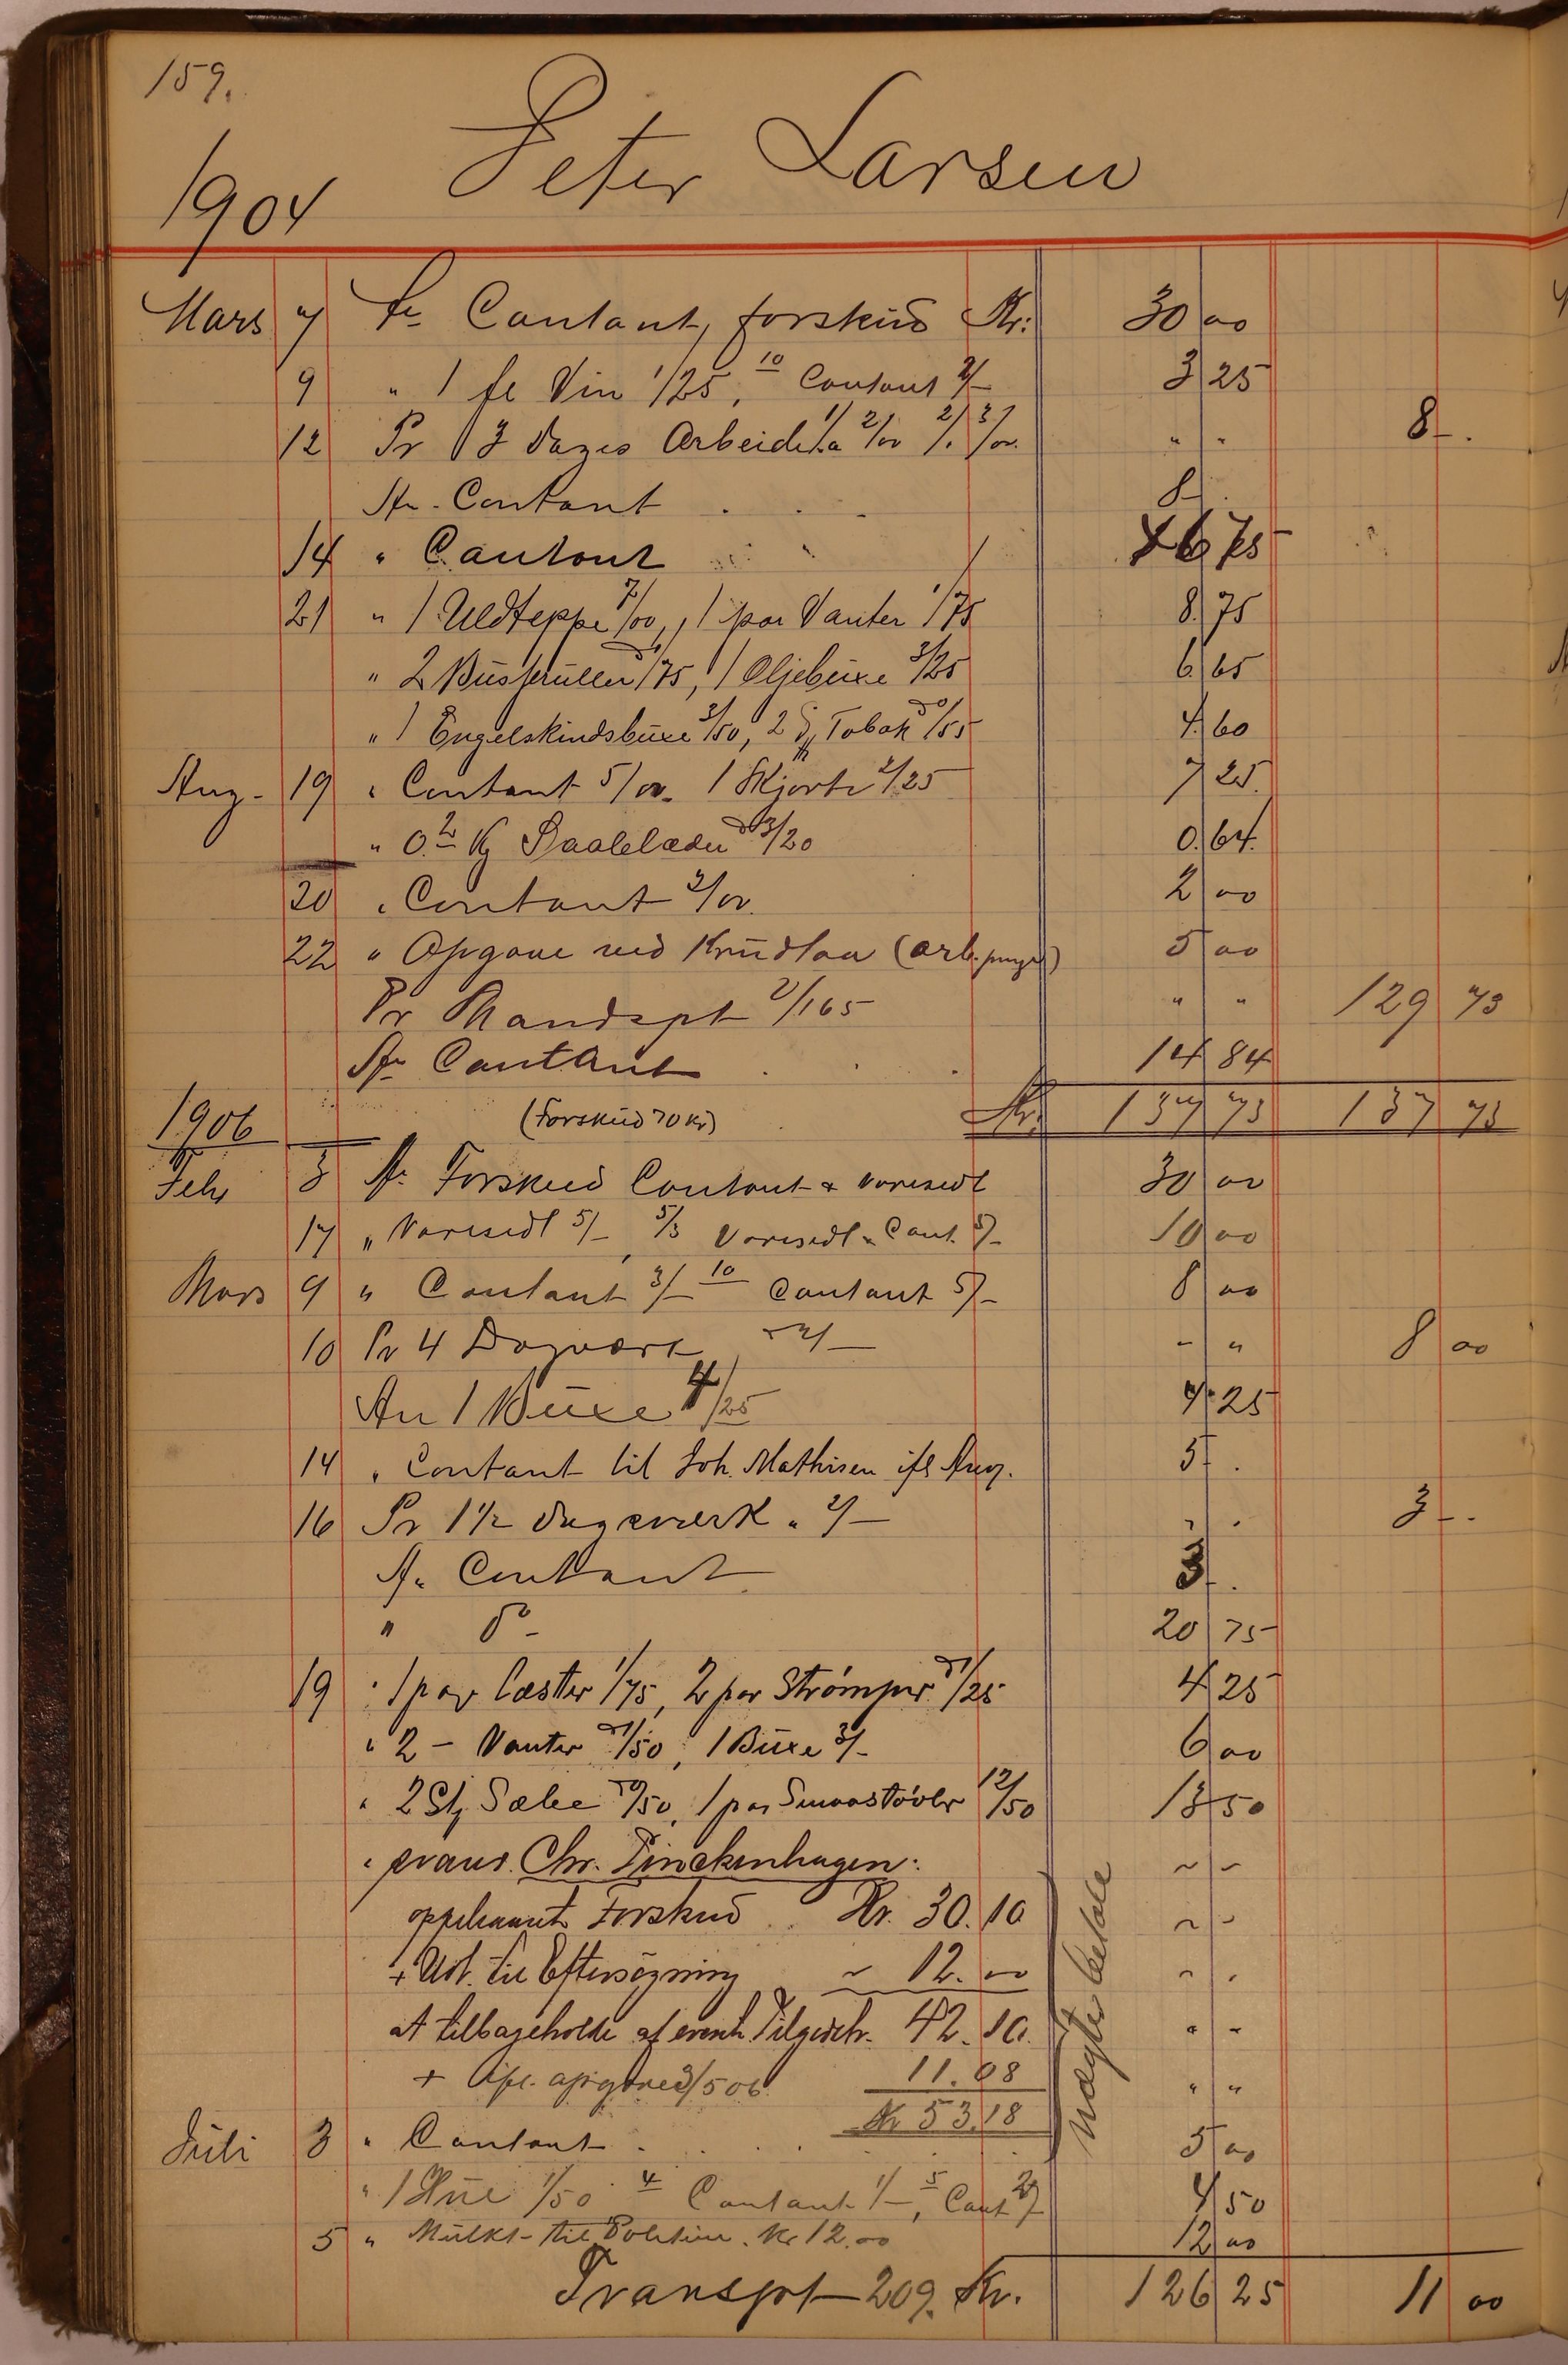 159.
Peter Larsen
1904
Mars 7 An Contant, forskud Kr: 30 00
9 " 1 fl Vin 1/25, 10 Contant 2/- 3 25
12 Pr 3 dages Arbeide 1/a 2/00 2/. 3/00 " " 8 - .
An. Contant . . . 8 - .
14 " Contant 46 75
21 " 1 Uldteppe 7/00, 1 par Vanter 1/75 8.75
" 2 Busseruller /75, 1 Oljebuxe 3/25 6.65
" 1 Engelskindsbuxe 3/50, 2 Tobak /55 4.60
Aug. 19 " Contant 5/00. 1 Skjorte 2/25 7 25.
" 0.2 Kg Saalelæder 3/20 0.64.
20 " Contant 2/00. 2 00
22 " Opgave ved (arb.penge) 5 00
Pr Mandspt 2/165 " " 129 73
An Contant . . . 14 84
1906 (Forskud 70 Kr) Kr. 137 73 137 73
Febr 3 An Forskud Contant & varesedl 30 00
17 " Varesedl 5/-, 5/3 Varesedl & Cont. 5/- 10 00
Mars 9 " Contant 3/- 10 Contant 5/- 8 00
10 Pr 4 Dagværk 2/- - " 8 00
An 1 Buxe 4/25 4.25
14 " Contant til Joh. Mathisen ifl Anv. 5 - .
16 Pr 1 1/2 dagværk " 2/- " . 3 - .
An Contant 3 - .
" do - 20 75
19 " 1 par Læster 1/75, 2 par Strømper 1/25 4 25
" 2 - Vanter 1/50, 1 Buxe 3/- 6 00
" 2 Stj Sæbe /50, 1 par Smaastøvler 12/50 13 50
" Chr. Dinckenhagen: ~ ~
Forskud .. Kr. 30.10 ~ ~
+ Udl. til Eftersøgning ~ 12.00 ~ .
at tilbageholde af event. Tilgodeh. 42.10. " "
+ 11.08 " "
Kr 53.18
Nægter betale
Juli 3 " Contant . . . . 5 00
" 1 Hue 1/50 4 Contant 1/-, 5 Cont 2/- 4 50
5 " Mulkt til Politiet. Kr 12.00 12 00
Transpt 209. Kr. 126 25 11 00